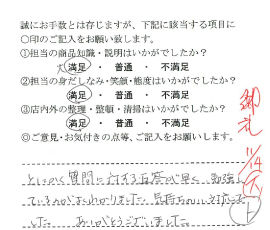 誠にお手数とは存じますが、下記に該当する項目に
〇印のご記入をお願い致します。
①担当の商品知識・説明はいかがでしたか?
大満足 ・ 普通 ・ 不満足
②担当の身だしなみ・笑顔・態度はいかがでしたか?
満足 ・ 普通 ・ 不満足
③店内外の整理・整頓・清掃はいかがでしたか?
満足 ・ 普通 ・ 不満足
◎ご意見・お気付きの点等、ご記入をお願いします。
とにかく質問に対する応答が早く、勉強し
ているのがよくわかりました。気持ちのいい対応で
した。 ありがとうございました。
御礼
11/14